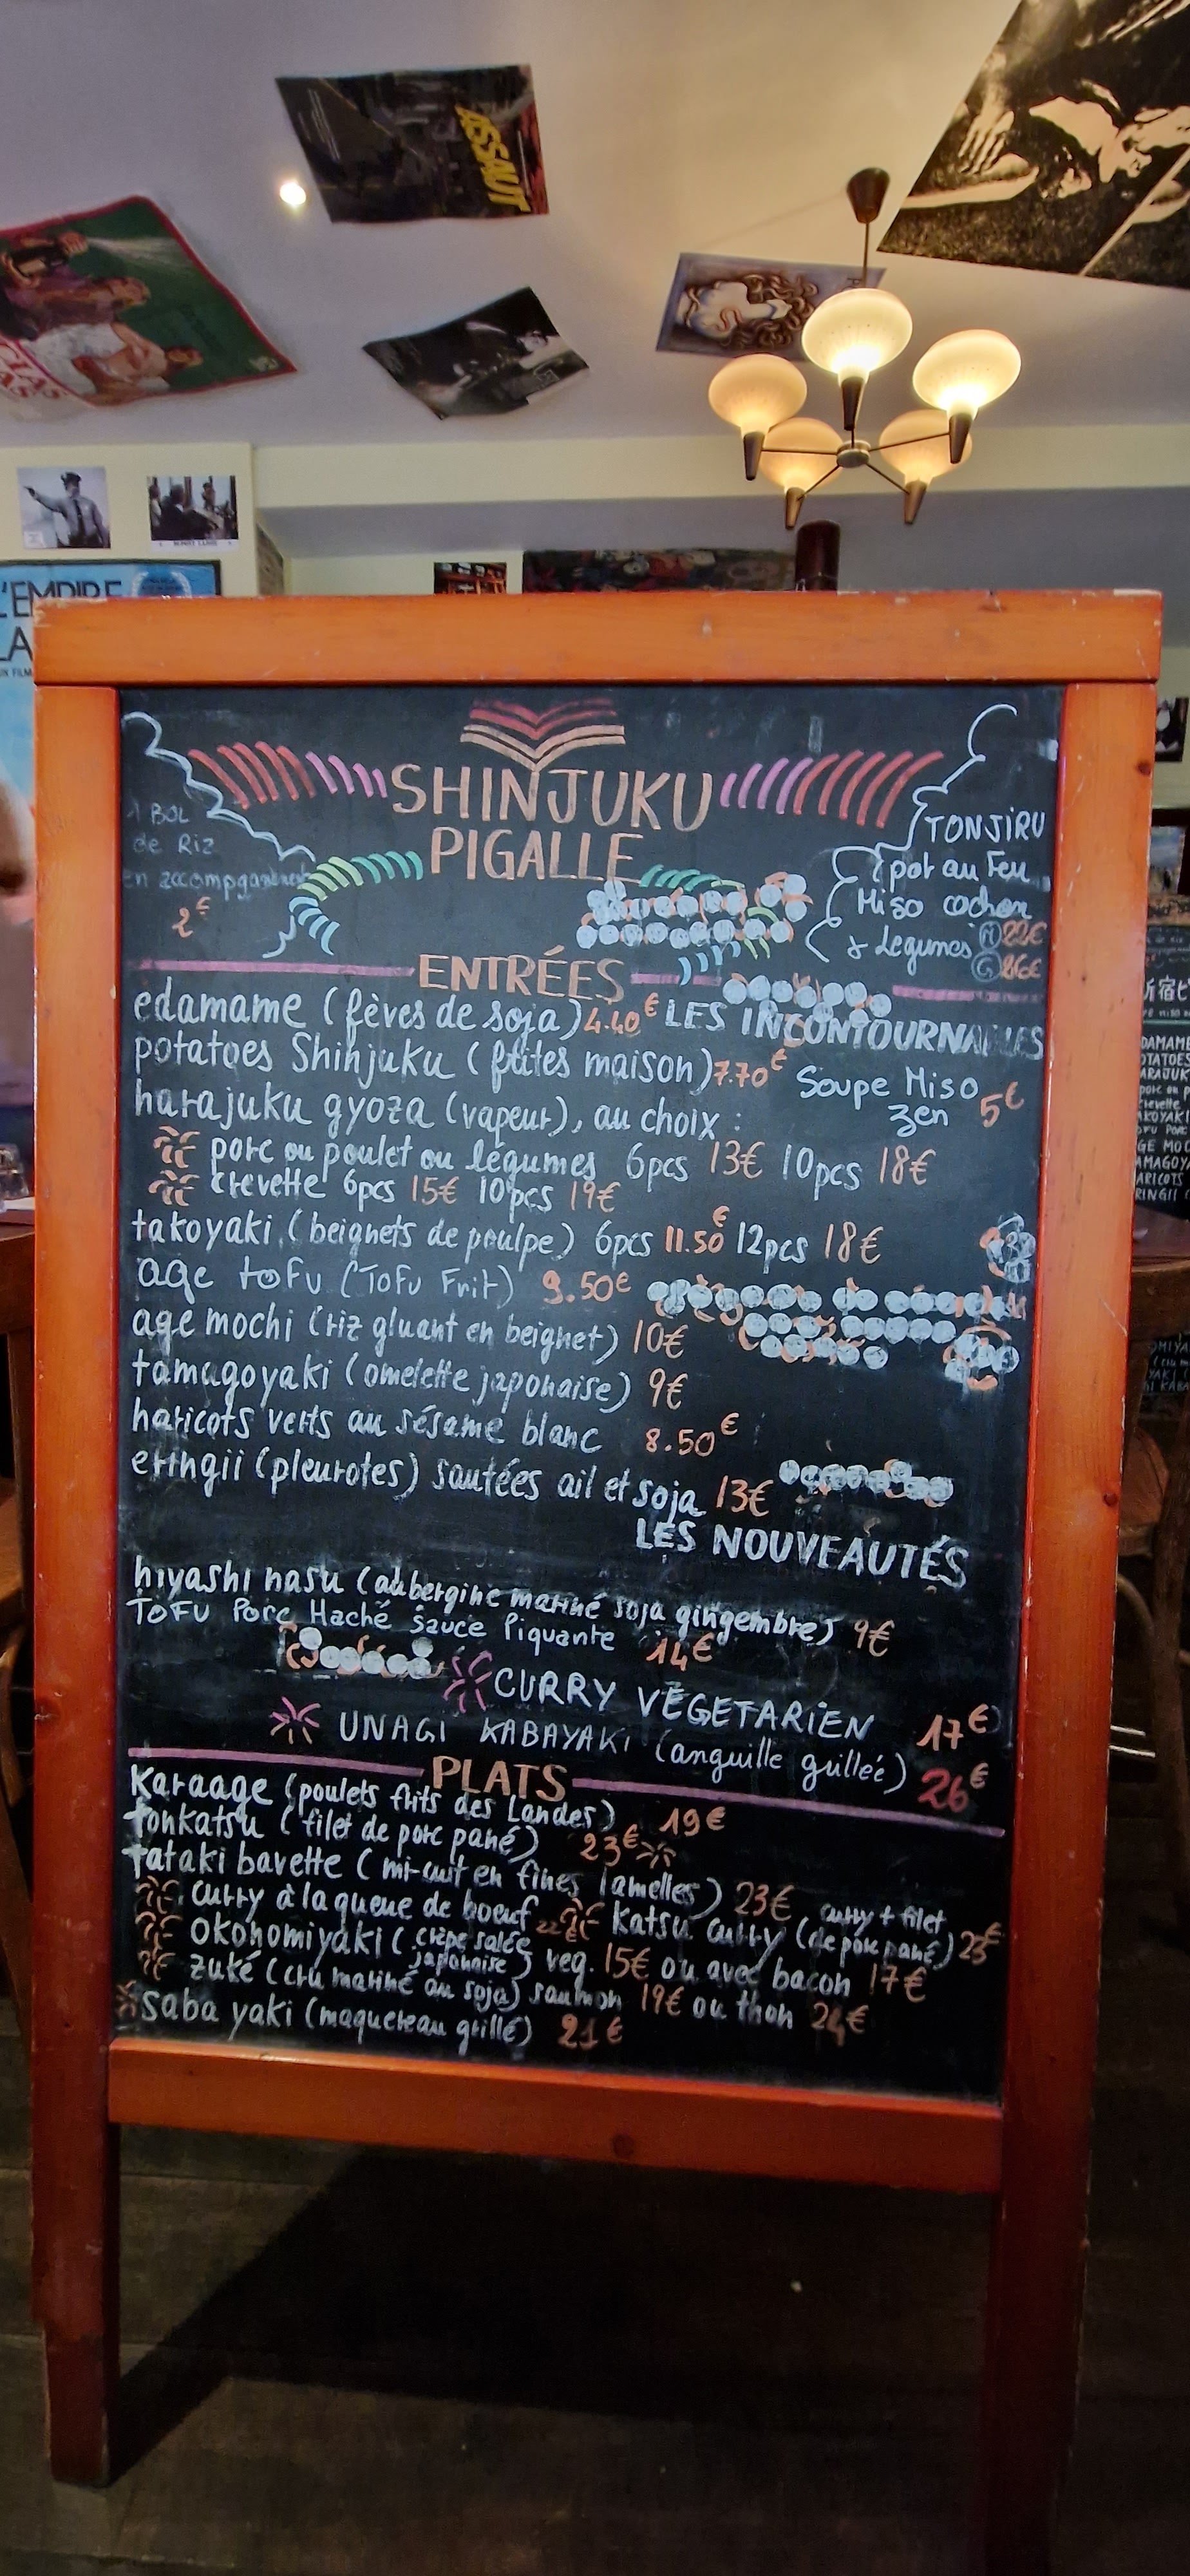 ASSAUT
L'EMPIRE
LA
SHINJUKU
PIGALLE
1 BOL
de Riz
en accompganiment
2€
TONJIRU
pot au Feu
Miso cochon
& Legumes
ENTRÉES
edamame (fèves de soja) 4.40€
LES INCONTOURNABLES
potatoes Shinjuku (frites maison) 7.70€
Soupe Miso
zen 5€
harajuku gyoza (vapeur), au choix :
porc ou poulet ou légumes 6pcs 13€ 10pcs 18€
crevette 6pcs 15€ 10pcs 19€
takoyaki (beignets de poulpe) 6pcs 11.50€ 12pcs 18€
age tofu (Tofu Frit) 9.50€
age mochi (riz gluant en beignet) 10€
tamagoyaki (omelette japonaise) 9€
haricots verts au sésame blanc 8.50€
eringii (pleurotes) sautées ail et soja 13€
LES NOUVEAUTÉS
hiyashi nasu (aubergine mariné soja gingembre) 9€
Tofu Porc Haché sauce Piquante 14€
CURRY VÉGETARIEN 17€
UNAGI KABAYAKI (anguille grillée) 26€
PLATS
Karaage (poulets frits des Landes) 19€
tonkatsu (filet de porc pané) 23€
tataki bavette (mi-cuit en fines lamelles) 23€
curry à la queue de boeuf 22€ Katsu curry (curry + filet de porc pané) 23€
okonomiyaki (crêpe salée japonaise) veg. 15€ ou avec bacon 17€
zuké (cru mariné au soja) saumon 19€ ou thon 24€
saba yaki (maquereau grillé) 21€